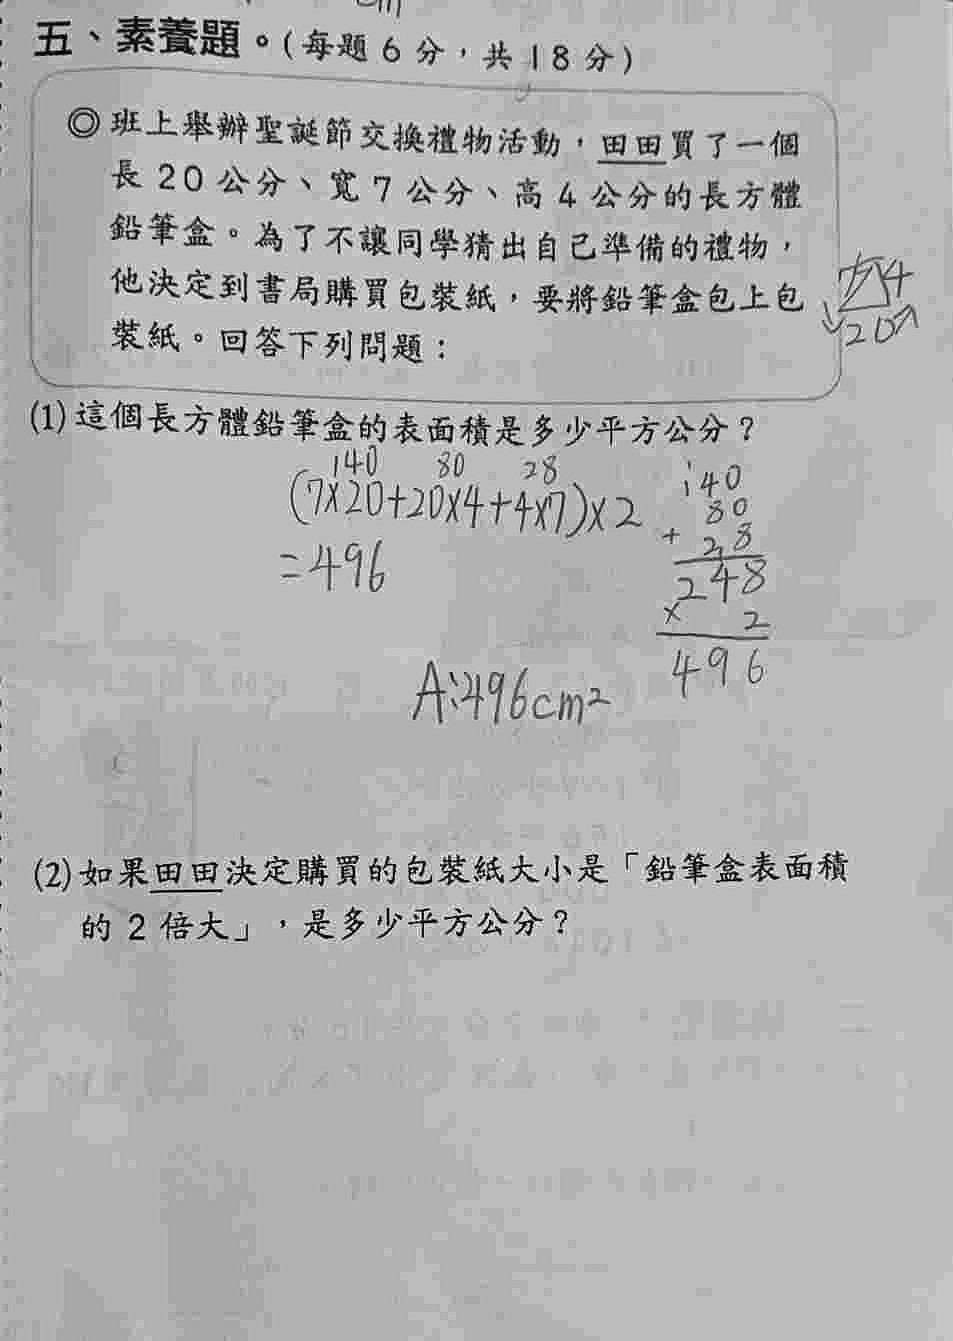 cm
五、素養題。(每題6分，共18分)
◎班上舉辦聖誕節交換禮物活動，田田買了一個
長20公分、寬7公分、高4公分的長方體
鉛筆盒。為了不讓同學猜出自己準備的禮物，
他決定到書局購買包裝紙，要將鉛筆盒包上包
裝紙。回答下列問題：
7 4
20
(1)這個長方體鉛筆盒的表面積是多少平方公分？
140 80 28
(7×20+20×4+4×7)×2
=496
140
80
+ 28
248
× 2
496
A:496cm²
(2)如果田田決定購買的包裝紙大小是「鉛筆盒表面積
的2倍大」，是多少平方公分？